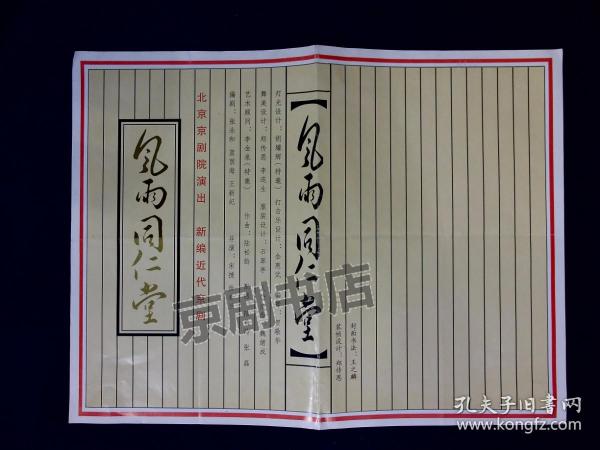 【风雨同仁堂】
灯光设计：
打击乐设计：金惠武
舞美设计：郑传恩 李连生
服装设计：石翠亭
艺术顾问：李金泉（特邀）
作曲：陆松龄
张磊
编剧：张永和
王新纪
导演：宋捷
北京京剧院演出 新编近代京剧
风雨同仁堂
封面书法：王之鏻
装帧设计：郑传恩
京剧书店
孔夫子旧书网
www.kongfz.com